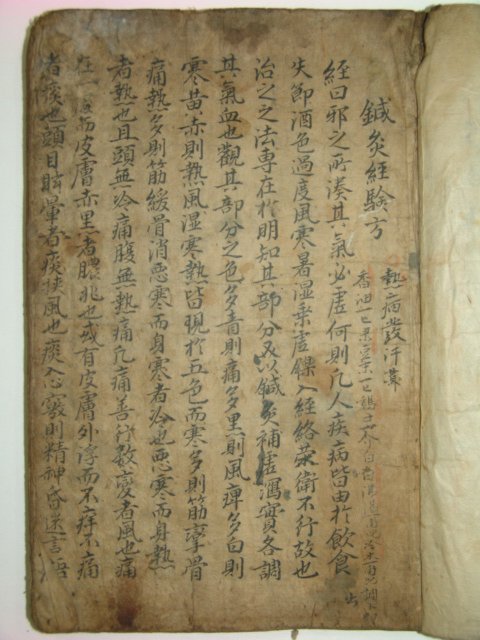 鍼灸經驗方
熱病發汗
經曰邪之所湊其氣必虛何則凡人疾病皆由於飮食
失節酒色過度風寒暑湿乗虛鑠入經絡荣衛不行故也
治之之法專在於明知其部分又以鍼灸補虛瀉實各調
其氣血也觀其部分之色多青則痛多黑則風痺多白則
寒黄赤則熱風湿寒熱皆現於五色而寒多則筋攣骨
痛熱多則筋緩骨消惡寒而身寒者冷也惡寒而身熱
者熱也且頭無冷痛腹無熱痛凡痛善行数変者風也痛
在一處而皮膚赤里者膿兆也或有皮膚外浮而不痒不痛
者痰也頭目眩暈者痰挾風也痰入心竅則精神昏迷言語